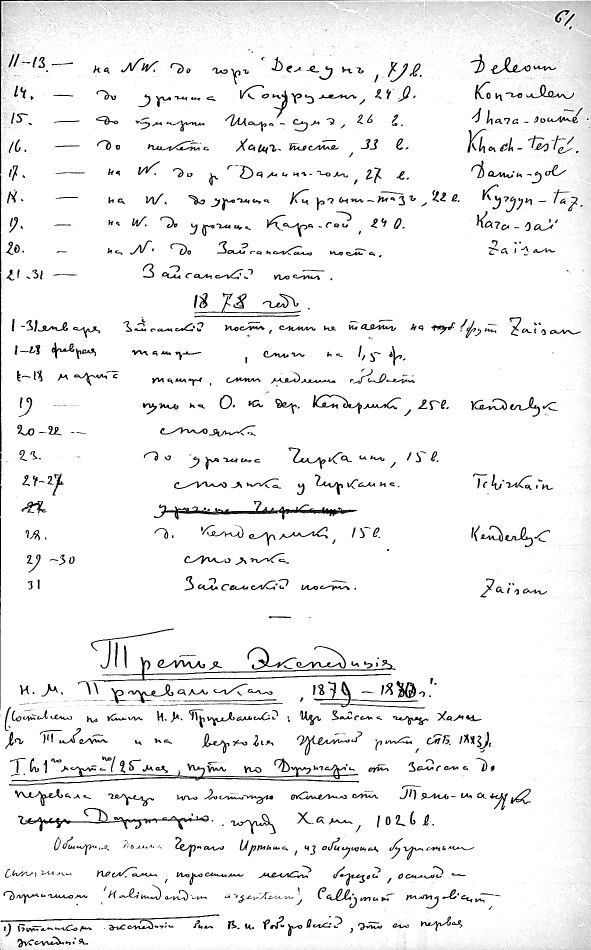 61.
11-13. — на NW. до горъ Делеунъ, 79 в. Deleoun
14. — до урочища Конгрулен, 24 в. Konroulen
15. — до кумирни Шара-сумэ, 26 в. Shara-soumé.
16. — до пикета Хаш-тесте, 33 в. Khach-testé.
17. — на W. до р. Даминъ-гол, 27 в. Damin-gol
18. — на W. до урочища -тазъ, 22 в. -taz.
19. — на W. до урочища Кара-сой, 24 в. Kara-saï
20. — на N. до Зайсанского поста. Zaïsan
21-31 — Зайсанскій постъ.
1878 годъ.
1-31 января Зайсанскій постъ, снѣгъ не таетъ на Zaïsan
1-28 февраля также, снѣгъ на 1,5 ф.
1-18 марта также, снѣгъ медленно сбываетъ
19 — путь на О. къ дер. Кендерликъ, 25 в. Kenderlyk
20-22 — стоянка
23. до урочища Чиркаинъ, 15 в.
24-27 стоянка у Чиркаина. Tchirkaïn
27 урочище Чиркаинъ
28. д. Кендерликъ, 15 в. Kenderlyk
29-30 стоянка
31 Зайсанскій постъ. Zaïsan
—
Третья Экспедиція
Н. М. Пржевальскаго, 1879 – 1880 г.¹
(Составлено по книгѣ Н. М. Пржевальскій: Изъ Зайсана черезъ Хами
въ Тибетъ и на верховья Желтой рѣки, СПб. 1883).
I. по 25 мая, путь по Джунгаріи отъ Зайсана до
перевала черезъ юго-восточную оконечность Тянь-шаня
черезъ Джунгарію. городъ Хами, 1026 в.
Обширная долина Чернаго Иртыша, изобилующая бугристыми
сыпучими песками, поросшими мелкой березой, осиной и
(Halimodendron argenteum), Calligonum mongolicum,
1) Ботаникомъ экспедиціи былъ В. И. Роборовскій, это его первая
экспедиція